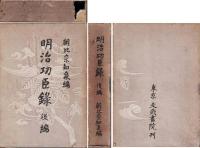 朝比奈知泉編
明治功臣録
後編
明治功臣録 後編 朝比奈知泉編
東京 文武書院刊